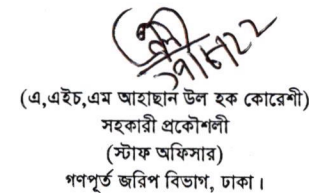 (এ,এইচ,এম আহাছান উল হক কোরেশী)
সহকারী প্রকৌশলী
(স্টাফ অফিসার)
গণপূর্ত জরিপ বিভাগ, ঢাকা।